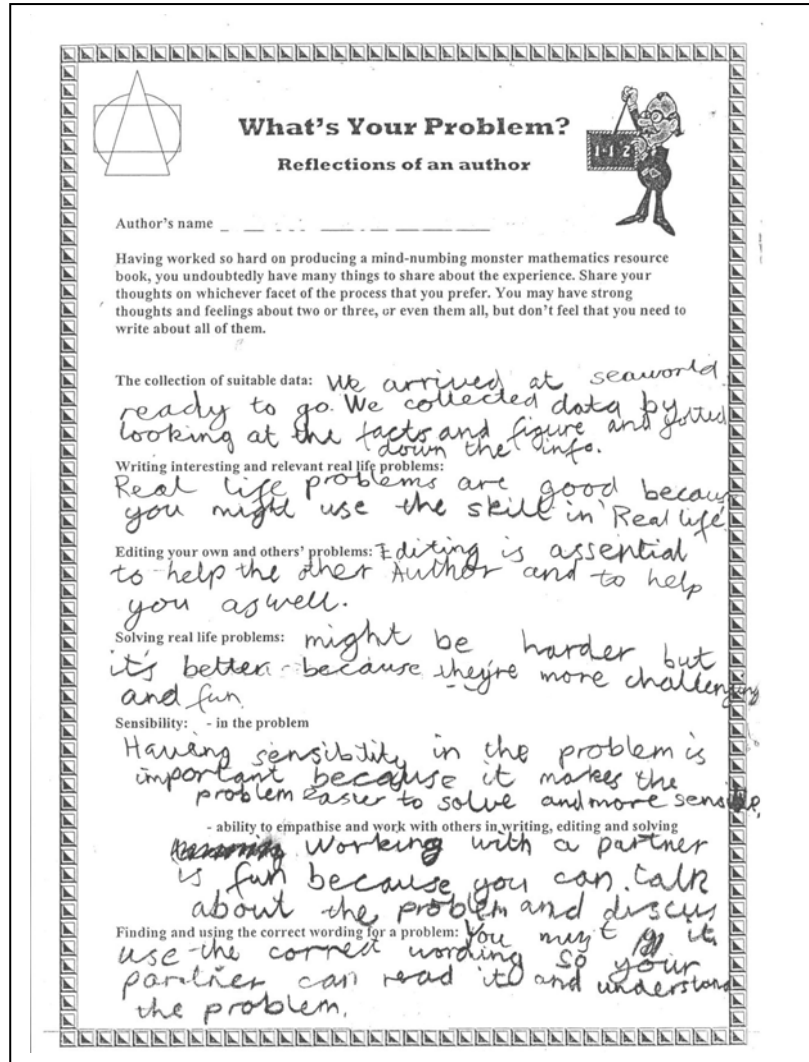 What's Your Problem?
Reflections of an author
1-1=2
Author's name
Having worked so hard on producing a mind-numbing monster mathematics resource
book, you undoubtedly have many things to share about the experience. Share your
thoughts on whichever facet of the process that you prefer. You may have strong
thoughts and feelings about two or three, or even them all, but don't feel that you need to
write about all of them.
The collection of suitable data: We arrived at seaworld
ready to go. We collected data by
looking at the facts and figure and jotted
down the info.
Writing interesting and relevant real life problems:
Real life problems are good becaus
you might use the skill in Real life
Editing your own and others' problems: Editing is assential
to help the other Author and to help
you aswell.
Solving real life problems: might be harder but
it's better because they're more challenging
and fun
Sensibility: - in the problem
Having sensibility in the problem is
important because it makes the
problem Easier to solve and more sensible.
- ability to empathise and work with others in writing, editing and solving
Working with a partner
is fun because you can talk
about the problem and discus
Finding and using the correct wording for a problem: You must it
use the correct wording so your
partner can read it and understand
the problem.